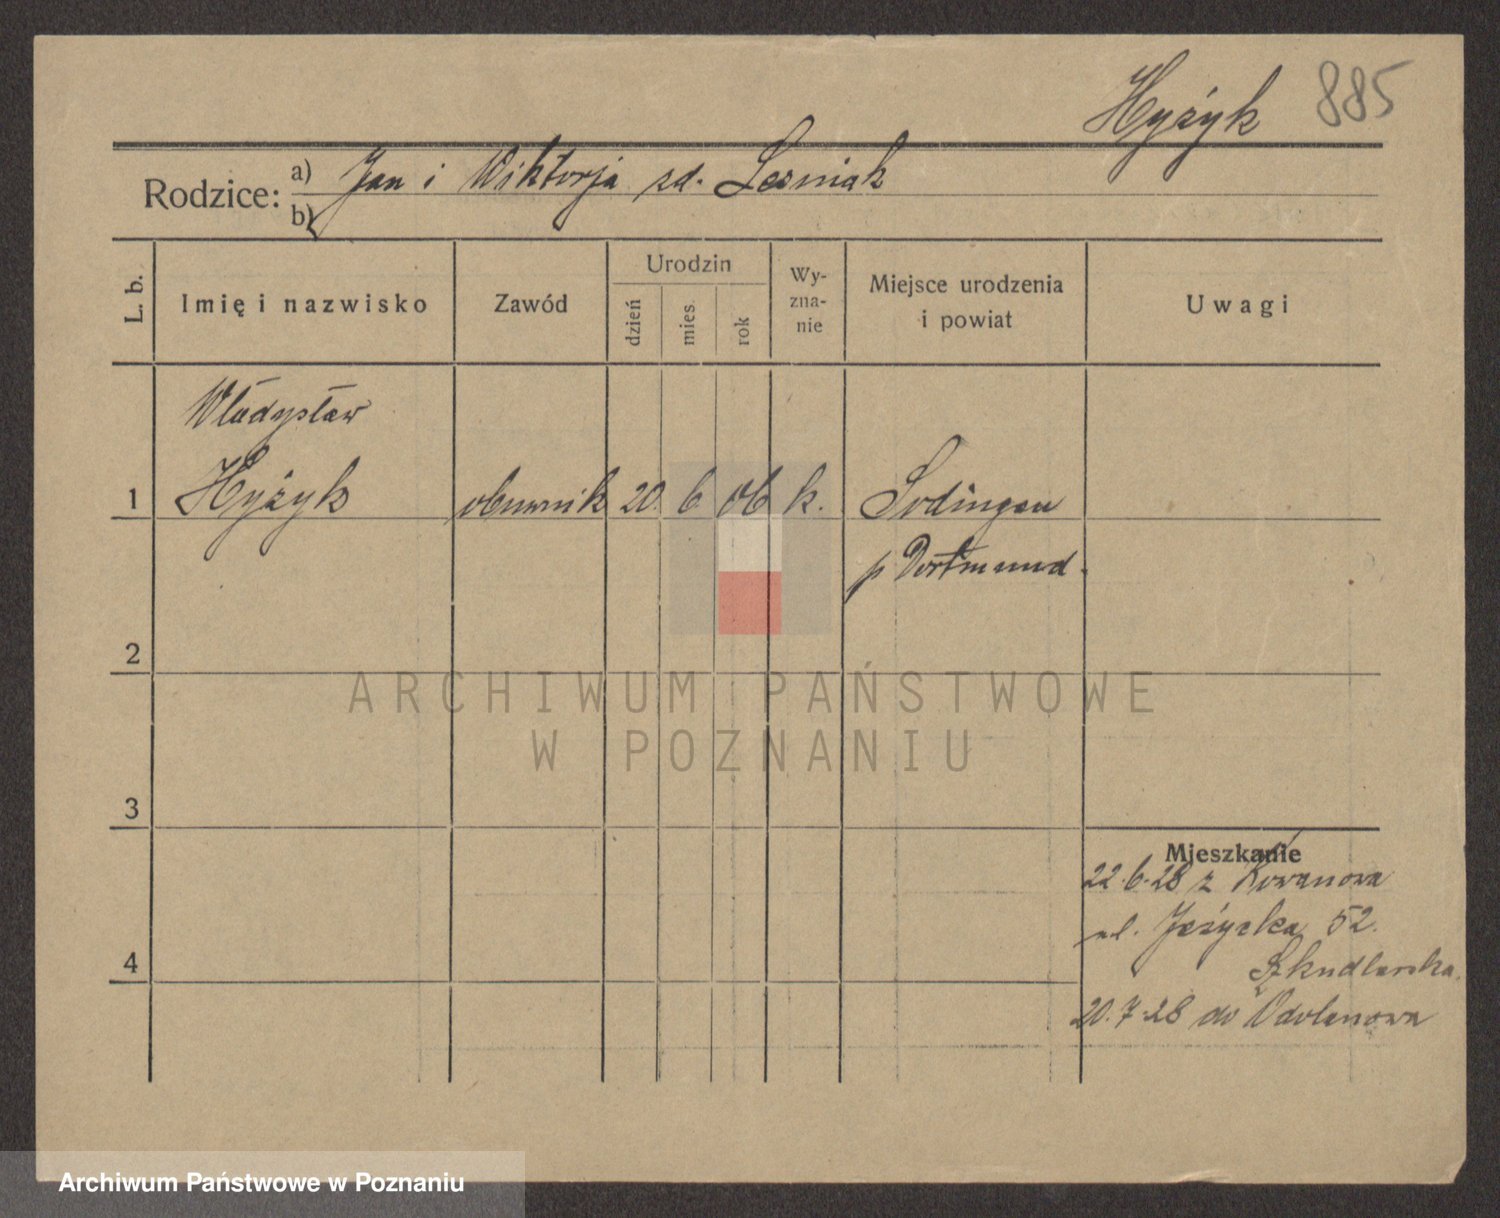 Hyżyk 885
Rodzice: a) Jan i Wiktorja zd. Leśniak
b)
L. b.
Imię i nazwisko
Zawód
Urodzin
dzień
mies.
rok
Wy-
zna-
nie
Miejsce urodzenia
i powiat
Uwagi
Władysław
1 Hyżyk obuwnik 20. 6 06 k. Sodingen
p Dortmund.
2
ARCHIWUM PAŃSTWOWE
W POZNANIU
3
Mieszkanie
22.6.28 z Kowanowa
ul. Jeżycka 52.
Szkudlarska.
4
20.7.28 do Odolanowa
Archiwum Państwowe w Poznaniu